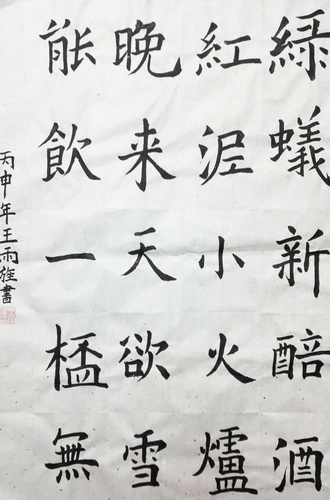 綠蟻新醅酒
紅泥小火爐
晚来天欲雪
能飲一桮無
丙申年王雨
書